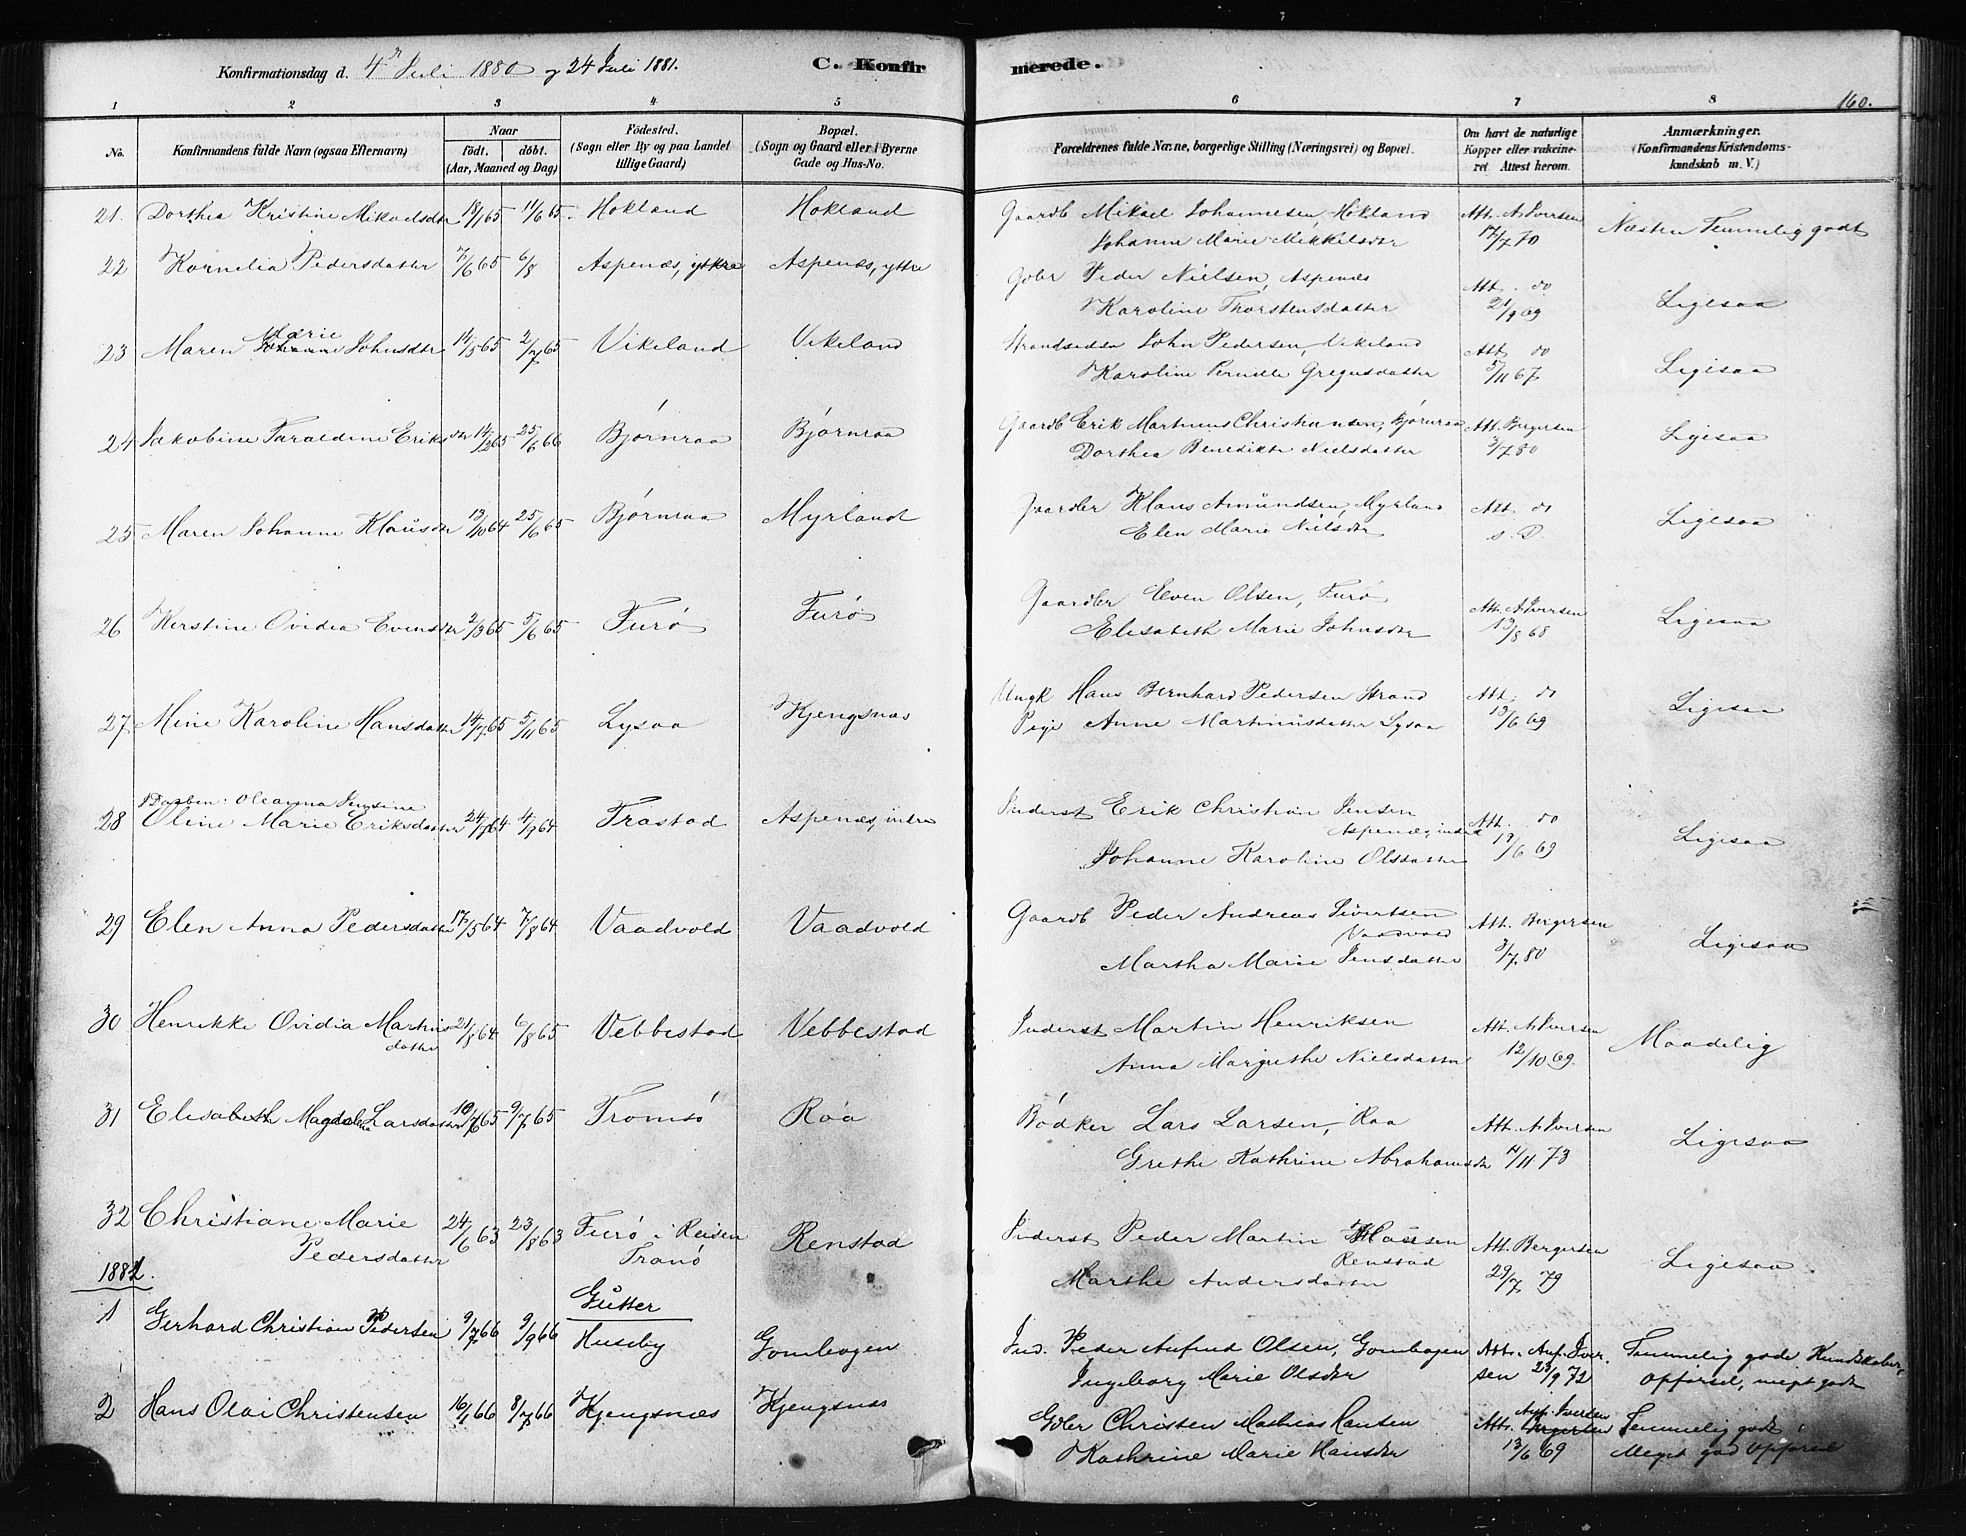 Konfirmationsdag d. 4 Juli 1880 og 24 Juli 1881. C. Konfirmerede.
160.
1 2 3 4 5 6 7 8
No. Konfirmandens fulde Navn (ogsaa Efternavn) Naar født. døbt. (Aar, Maaned og Dag) Fødested. (Sogn eller By og paa Landet tillige Gaard) Bopæl. (Sogn og Gaard eller i Byerne Gade og Hus-No. Forældrenes fulde Navne, borgerlige Stilling (Næringsvei) og Bopæl. Om havt de naturlige Kopper eller vakcineret Attest herom. Anmærkninger. (Konfirmandens Kristendomskundskab m. V.)
21. Dorthea Kristine Mikaelsdtr 18/1 65 11/6 65. Hokland Hokland Gaardb Mikael Johannesen, Hokland Att. A. Iversen Næsten Temmelig godt
Johanne Marie Mikkelsdtr 17/7 70
22 Kornelia Pedersdatter 7/6 65 6/8 Aspenæs, yttre Aspenæs, yttre Gdbr Peder Nielsen, Aspenæs Att. do Ligesaa
Karoline Thorstensdatter 21/9 69
23 Maren Marie Johnsdtr 14/5 65 2/7 65 Vikeland Vikeland Strandsidder John Pedersen, Vikeland Att do Ligesaa
Karoline Pernille Gregusdatter 5/11 67
24 Jakobine Taraldine Eriksdtr 14/2 65 25/6 66 Bjørnraa Bjørnraa Gaardb Erik Martinus Christiansen, Bjørnraa Att. Bergersen Ligesaa
Dorthea Benedikte Nielsdatter 3/7 80
25 Maren Johanne Klausdtr 13/10 64 25/6 65 Bjørnraa Myrland Gaardbr Klaus Amundsen, Myrland Att do Ligesaa
Elen Marie Nielsdtr s. D.
26 Kerstine Ovidia Evensdtr 2/3 65 5/6 65 Furø Furø Gaardbr Even Olsen, Furø Att. A. Iversen Ligesaa
Elisabeth Marie Johnsdtr 13/8 68
27 Mine Karoline Hansdatter 14/7 65 5/11 65 Lysaa Kjengsnæs Ungk Hans Bernhard Pedersen Strand Att. do Ligesaa
Pige Anne Martinusdatter Lysaa 13/6 69
Daaben: Oleanna Jensine
28 Oline Marie Eriksdatter 24/7 64 4/9 64 Trastad Aspenæs, indre Inderst Erik Christian Jensen Att. do Ligesaa
Aspenæs, indre 19/6 69
Johanne Karoline Olsdatter
29 Elen Anna Pedersdatter 17/5 64 7/8 64 Vaadvold Vaadvold Gaardb Peder Andreas Sivertsen Att. Bergersen Ligesaa
Vaadvold 3/7 80
Martha Marie Jensdatter
30 Henrikke Ovidia Martins 21/8 64 6/8 65 Vebbestad Vebbestad Inderst Martin Henriksen Att. A. Iversen Maadelig
datter Anna Margrethe Nielsdatter 12/10 69
31 Elisabeth Magdalena Larsdatter 10/6 65 9/7 65 Tromsø Raa Bødker Lars Larsen, Raa Att. A. Iversen Ligesaa
Grethe Kathrine Abrahamsdtr 4/11 73
32 Christiane Marie 24/6 63 23/8 63 Furø i Reisen Renstad Inderst Peder Martin Hansen Att. Bergersen Ligesaa
Pedersdatter Tranø Renstad 29/7 79
Marthe Andersdatter
1881.
Gutter
1 Gerhard Christian Pedersen 9/7 66 9/9 66 Huseby Gombogen Ind. Peder Aufind Olsen, Gombogen Att. Auf. Iversen 23/9 72 Temmelig gode Kundskaber,
Ingeborg Marie Olsdtr opførsel, meget godt
2 Hans Olai Christensen 16/1 66 8/7 66 Kjengsnæs Kjengsnæs Gdbr Christen Mathias Hansen Att. Auf. Iversen Temmelig godt
Kathrine Marie Hansdtr 13/6 69 Meget god opførsel